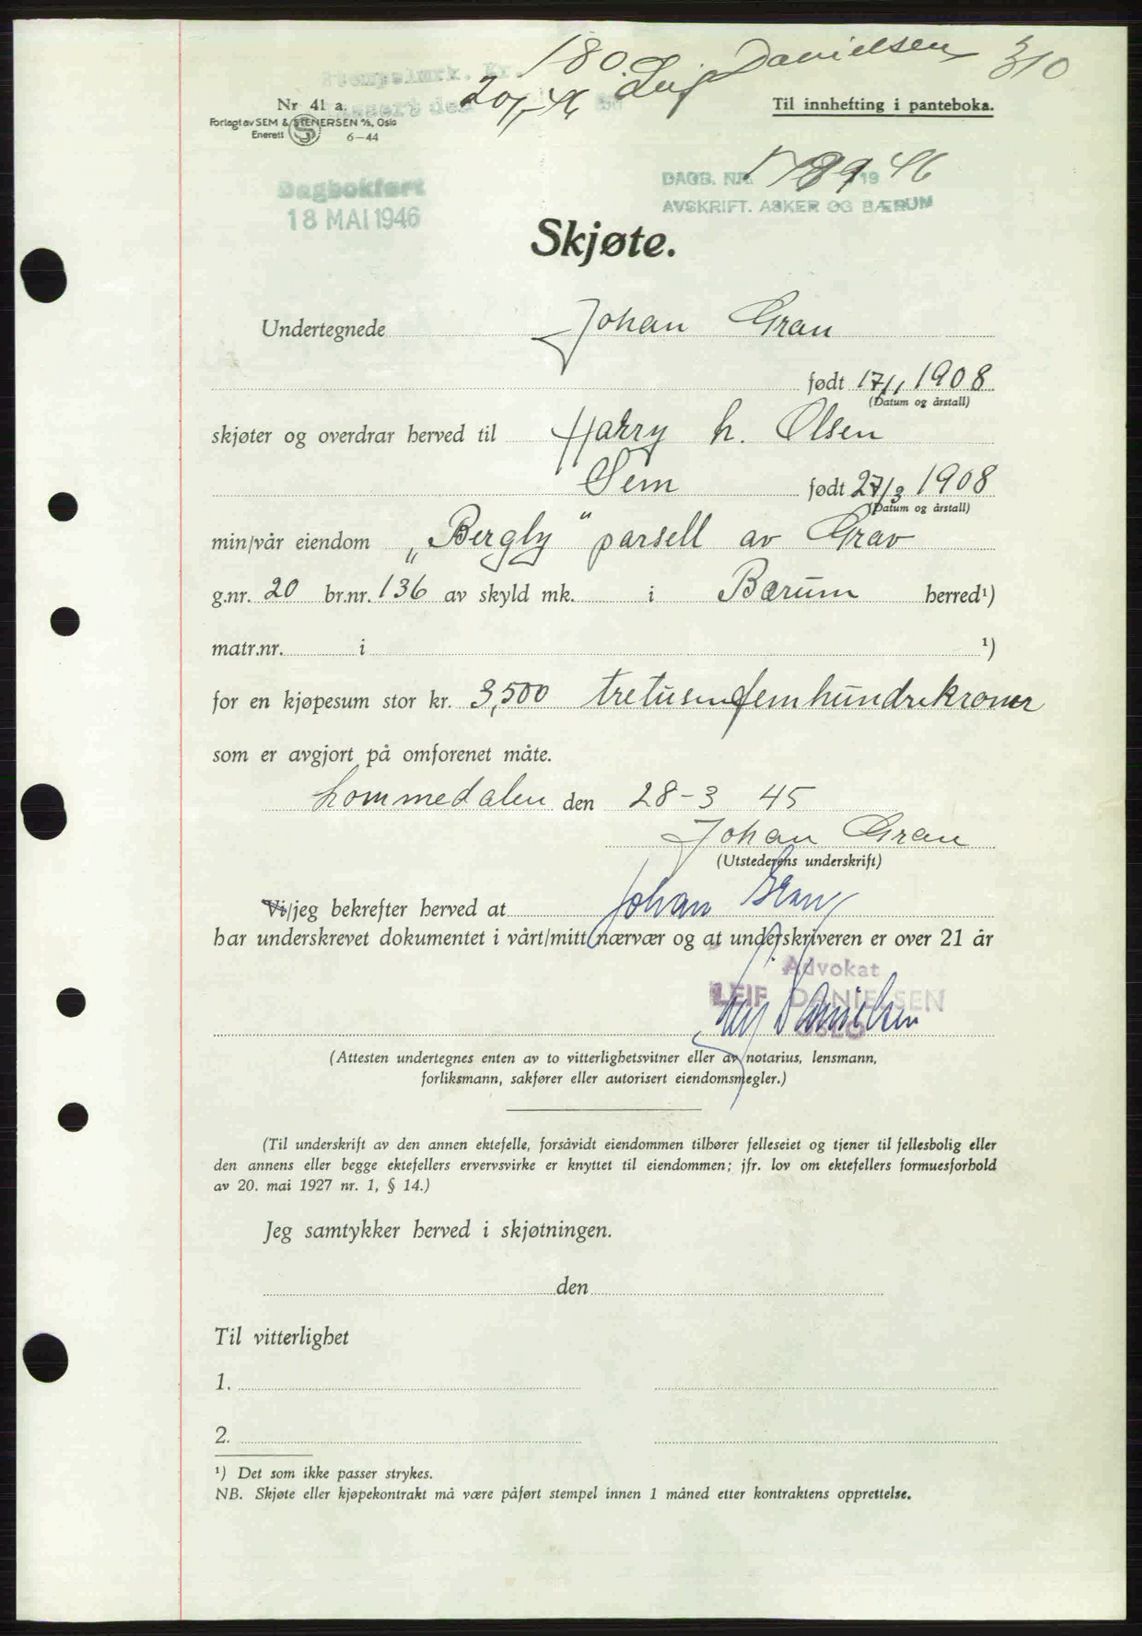 180 Leif Danielsen 310
Stempelmrk. Kr.
Nr 41 a. Til innhefting i panteboka.
Forlagt av SEM & STENERSEN A/S, Oslo
Enerett 6-44
DAGB. NR. 1789 1946
Dagbokført AVSKRIFT. ASKER OG BÆRUM
18 MAI 1946
Skjøte.
Undertegnede Johan Gran
født 17/1 1908
(Datum og årstall)
skjøter og overdrar herved til Harry h. Olsen
Sem født 27/3 1908
(Datum og årstall)
min/vår eiendom „Bergly“ parsell av Grav
g.nr. 20 br.nr. 136 av skyld mk. i Bærum herred¹)
matr.nr. i ¹)
for en kjøpesum stor kr. 3,500 tretusenfemhundrekroner
som er avgjort på omforenet måte.
Lommedalen den 28-3 45
Johan Gran
(Utstederens underskrift)
Vi/jeg bekrefter herved at Johan Gran
har underskrevet dokumentet i vårt/mitt nærvær og at underskriveren er over 21 år
Advokat
LEIF DANIELSEN
OSLO
Leif Danielsen
(Attesten undertegnes enten av to vitterlighetsvitner eller av notarius, lensmann,
forliksmann, sakfører eller autorisert eiendomsmegler.)
(Til underskrift av den annen ektefelle, forsåvidt eiendommen tilhører felleseiet og tjener til fellesbolig eller
den annens eller begge ektefellers ervervsvirke er knyttet til eiendommen; jfr. lov om ektefellers formuesforhold
av 20. mai 1927 nr. 1, § 14.)
Jeg samtykker herved i skjøtningen.
den
Til vitterlighet
1.
2.
¹) Det som ikke passer strykes.
NB. Skjøte eller kjøpekontrakt må være påført stempel innen 1 måned etter kontraktens opprettelse.